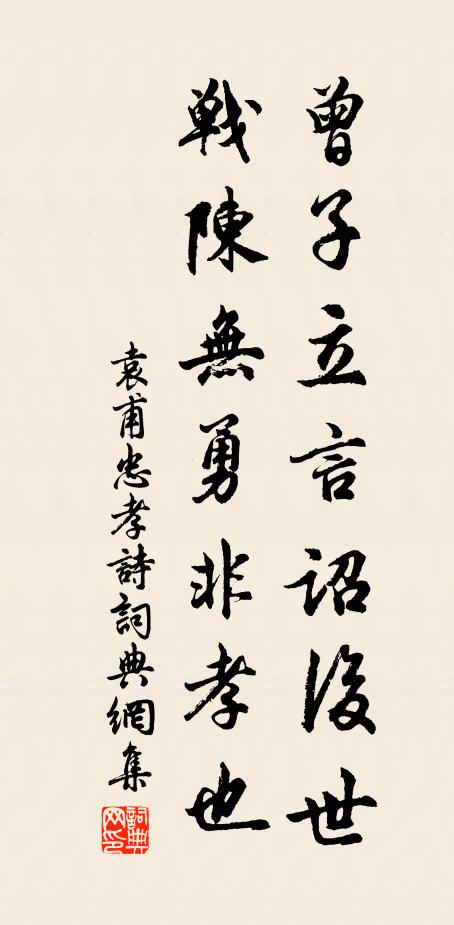 曾子立言詔後世
戰陳無勇非孝也
袁甫忠孝詩詞典網集
詞典网印